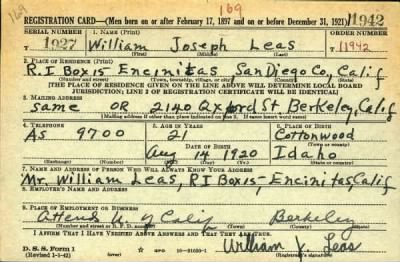 169
169
REGISTRATION CARD—(Men born on or after February 17, 1897 and on or before December 31, 1921) 11942
SERIAL NUMBER 1. NAME (Print) ORDER NUMBER
T 1027 William Joseph Leas T 11942
2. PLACE OF RESIDENCE (Print)
R.I Box15 Encinitas San Diego Co, Calif
(Number and street) (Town, township, village, or city) (County) (State)
[THE PLACE OF RESIDENCE GIVEN ON THE LINE ABOVE WILL DETERMINE LOCAL BOARD
JURISDICTION; LINE 2 OF REGISTRATION CERTIFICATE WILL BE IDENTICAL]
3. MAILING ADDRESS
same OR 2140 Oxford St. Berkeley, Calif
[Mailing address if other than place indicated on line 2. If same insert word same]
4. TELEPHONE 5. AGE IN YEARS 6. PLACE OF BIRTH
As 9700 21 Cottonwood
DATE OF BIRTH (Town or county)
Aug 14 1920 Idaho
(Mo.) (Day) (Yr.) (State or country)
7. NAME AND ADDRESS OF PERSON WHO WILL ALWAYS KNOW YOUR ADDRESS
Mr. William Leas, R I Box15- Encinitas Calif
8. EMPLOYER'S NAME AND ADDRESS
9. PLACE OF EMPLOYMENT OR BUSINESS
Attend U. of Calif Berkeley
(Number and street or R. F. D. number) (Town) (County) (State)
I AFFIRM THAT I HAVE VERIFIED ABOVE ANSWERS AND THAT THEY ARE TRUE.
D. S. S. Form 1
(Revised 1-1-42) GPO 16—21630-1 William J. Leas